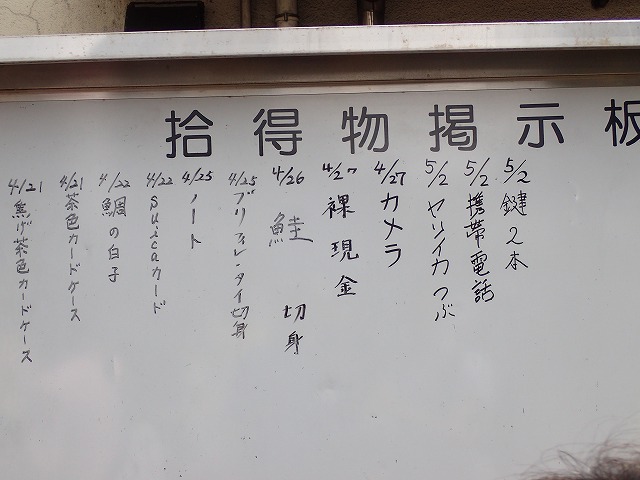 拾得物掲示板
5/2 鍵2本
5/2 携帯電話
5/2 ヤリイカ つぶ
4/27 カメラ
4/27 裸現金
4/26 鮭 切身
4/25 ブリフィレ・タイ切身
4/25 ノート
4/22 suicaカード
4/22 鯛の白子
4/21 茶色カードケース
4/21 焦げ茶色カードケース